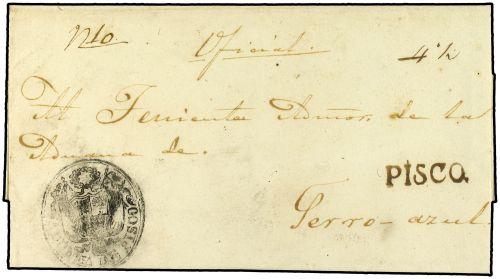 Nto. Oficial. 4 ½
Al Teniente Admor. de la
Aduana de.
PISCO.
Cerro-azul.
PISCO